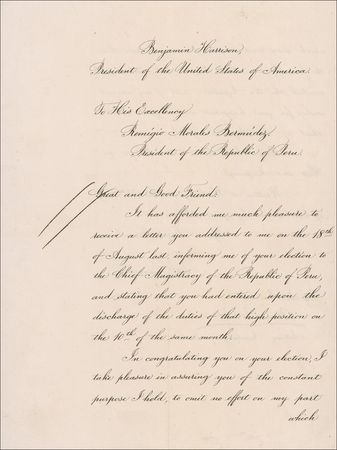 Benjamin Harrison,
President of the United States of America
To His Excellency
Remigio Morales Bermúdez,
President of the Republic of Peru.
Great and Good Friend:
It has afforded me much pleasure to
receive a letter you addressed to me on the 18th
of August last, informing me of your election to
the Chief Magistracy of the Republic of Peru,
and stating that you had entered upon the
discharge of the duties of that high position on
the 10th of the same month.
In congratulating you on your election, I
take pleasure in assuring you of the constant
purpose I hold, to omit no effort on my part
which